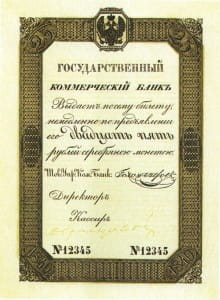 25 25
ГОСУДАРСТВЕННЫЙ
КОММЕРЧЕСКІЙ БАНКЪ
Выдастъ по сему билету,
немедленно по предъявленіи
его двадцать пять
рублей серебряною монетою.
Директоръ
Кассиръ
№12345 №12345
1840